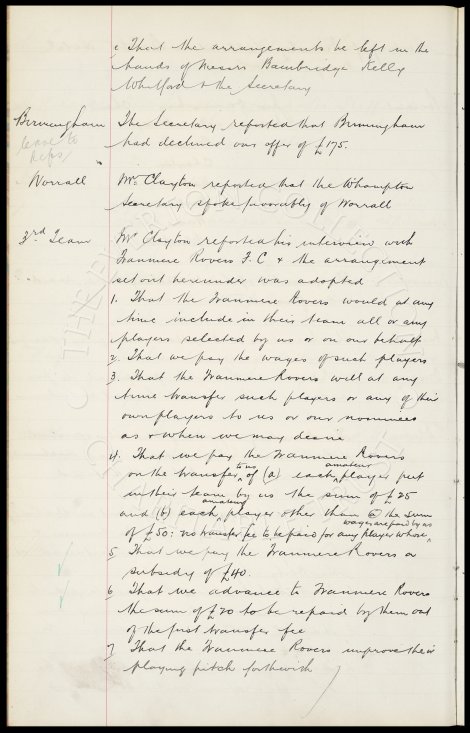 c That the arrangements be left in the
hands of Messrs Bainbridge Kelly
Whitford & the Secretary
Birmingham
The Secretary reported that Birmingham
had declined our offer of £175.
Worrall
Mr Clayton reported that the Whampton
Secretary spoke favorably of Worrall
3rd Team
Mr Clayton reported his interview with
Tranmere Rovers F.C & the arrangement
set out hereunder was adopted
1. That the Tranmere Rovers would at any
time include in their team all or any
players selected by us or on our behalf
2. That we pay the wages of such players
3. That the Tranmere Rovers will at any
time transfer such players or any of their
own players to us or our nominees
as & when we may desire
4. That we pay the Tranmere Rovers
on the transfer to us of (a) each amateur player put
in their team by us the sum of £25
and (b) each amateur player other than @ the sum
of £50: no transfer fee to be paid for any player whose wages are paid by us
5 That we pay the Tranmere Rovers a
subsidy of £40.
6 That we advance to Tranmere Rovers
the sum of £20 to be repaid by them out
of the first transfer fee
7 That the Tranmere Rovers improve their
playing pitch forthwith